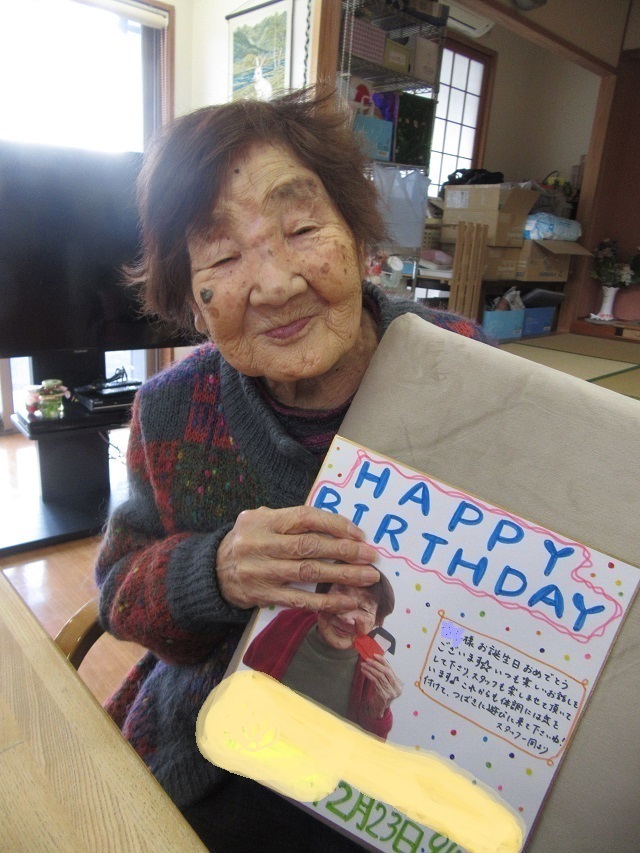 HAPPY
BIRTHDAY
様お誕生日おめでとう
ございます☆いつも楽しいお話を
して下さり、スタッフも楽しませて頂いて
います♪これからも体調には気を
付けて、つばきに遊びに来て下さいね!
スタッフ一同より
2月23日